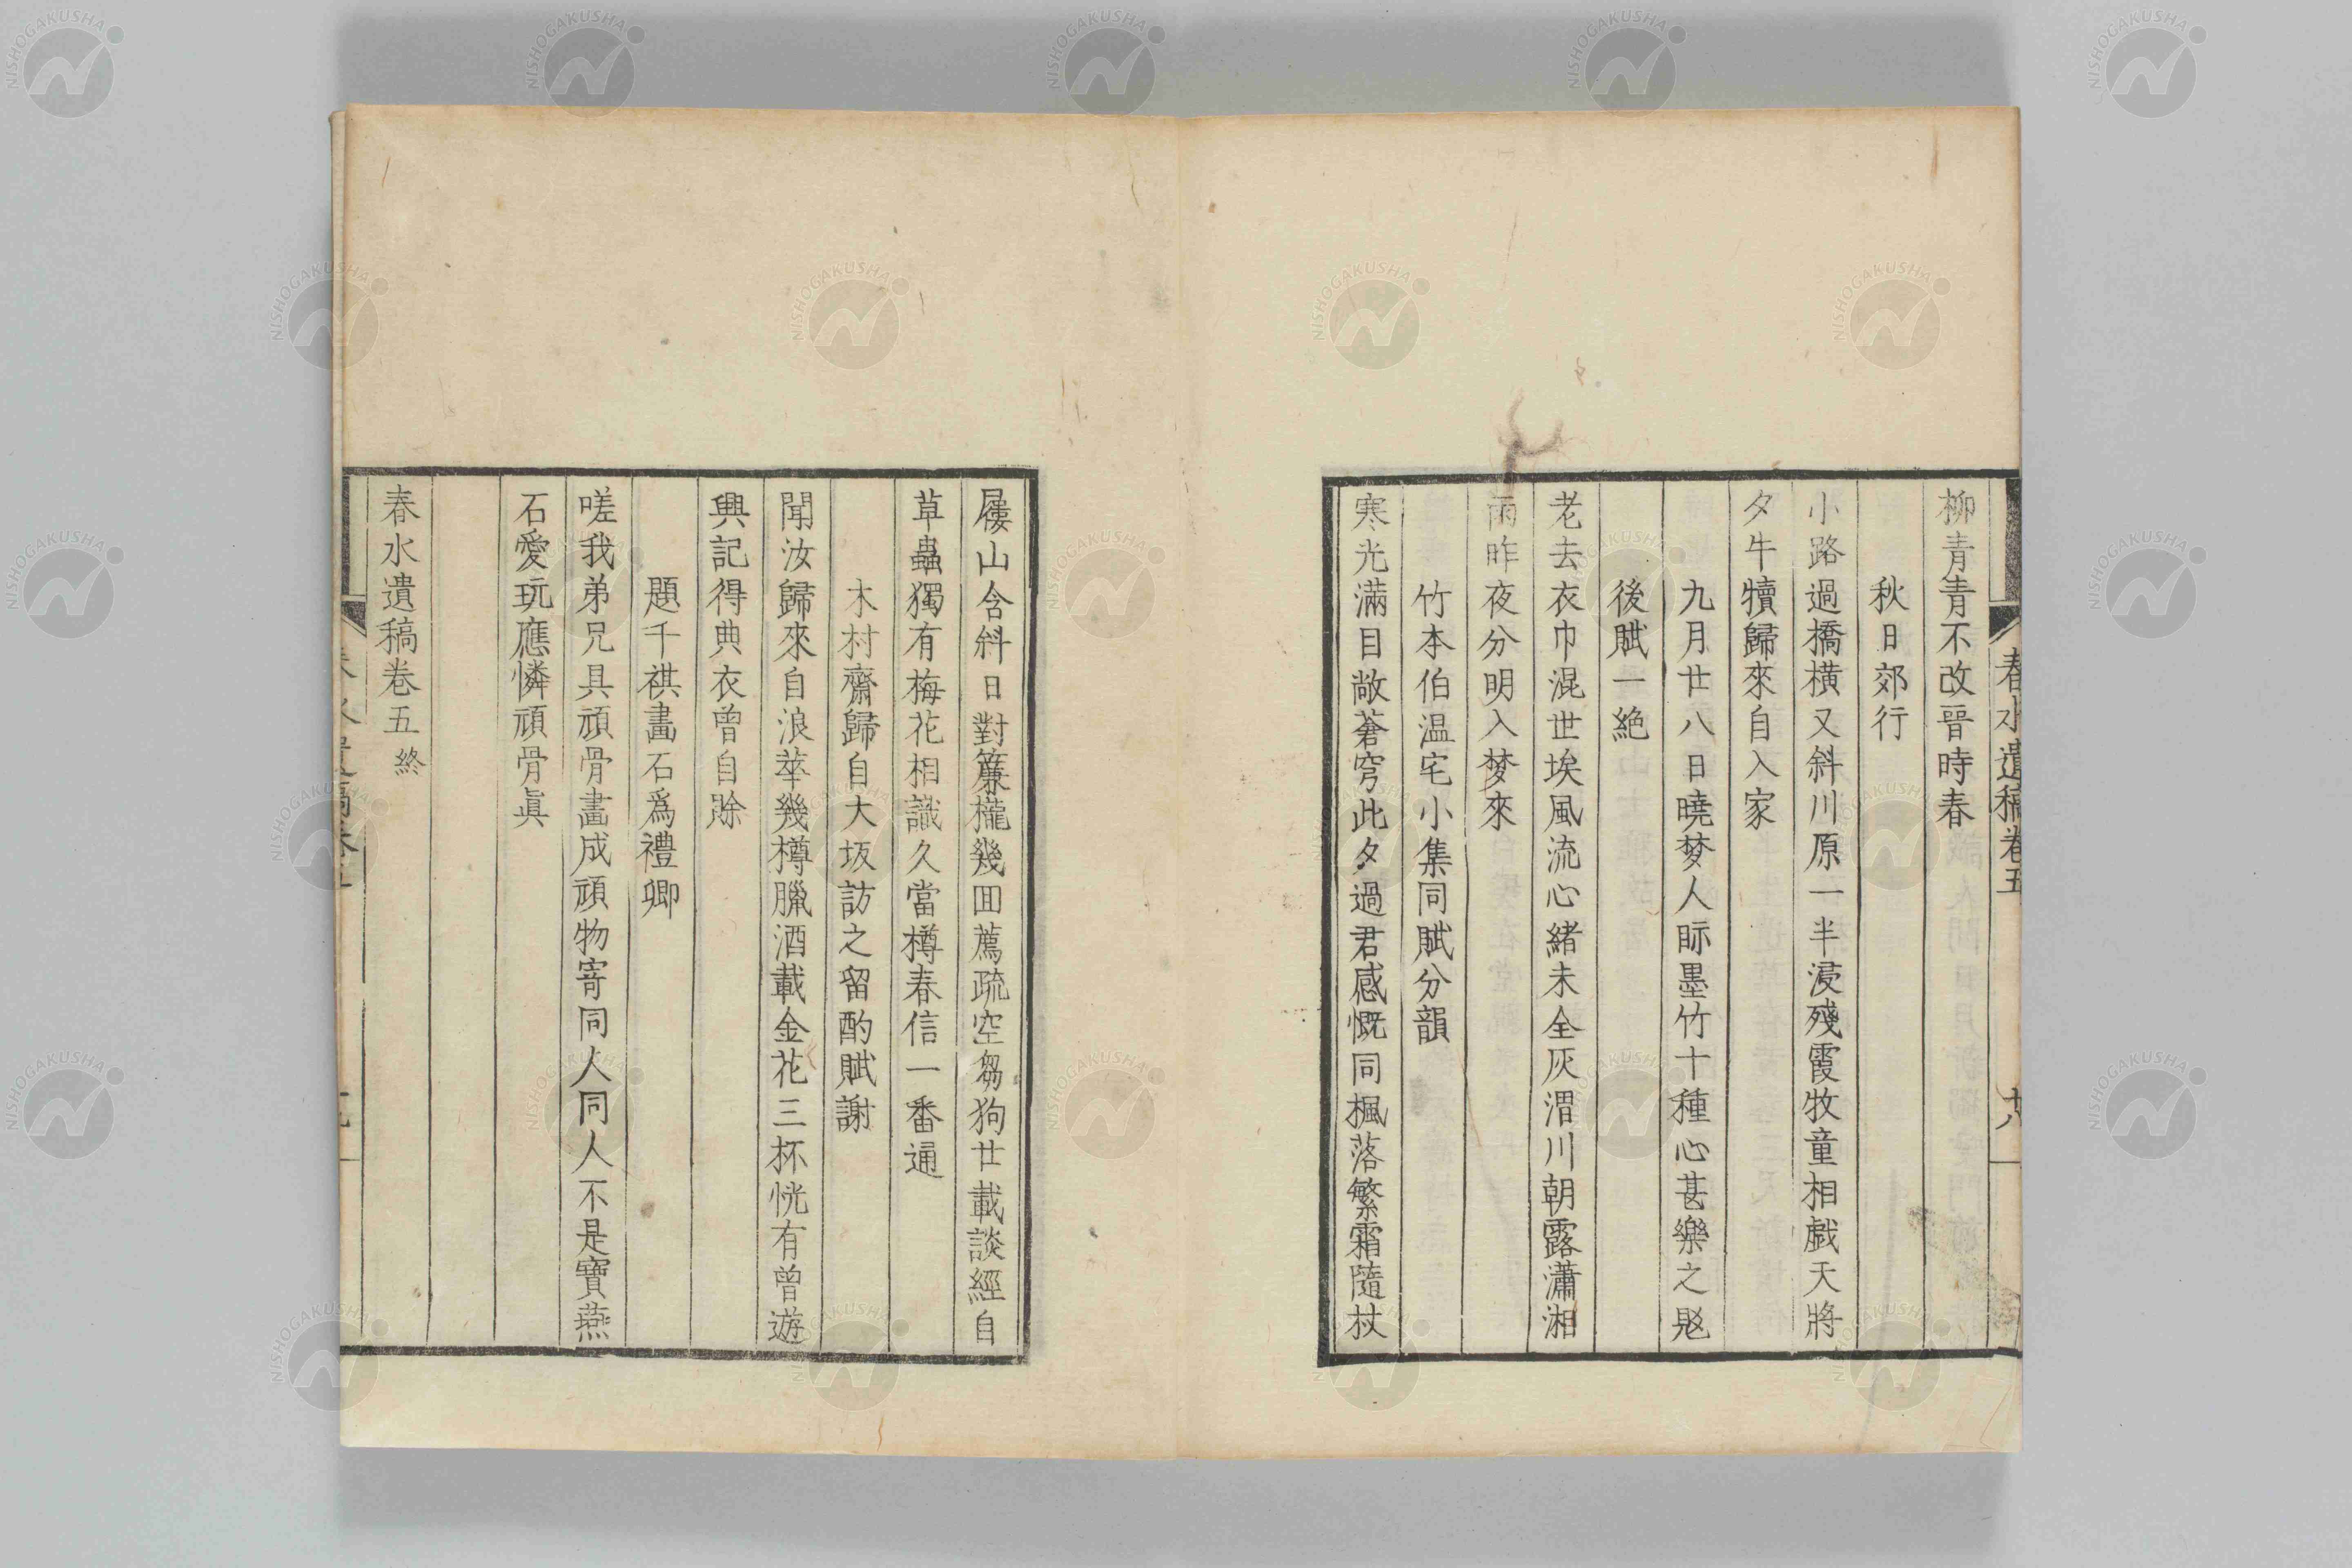 柳青青不改晉時春
秋日郊行
小路過橋橫又斜川原一半浸殘霞牧童相戲天將
夕牛犢歸來自入家
九月廿八日曉梦人眎墨竹十種心甚樂之
後賦一絶
老去衣巾混世埃風流心緒未全灰渭川朝露瀟湘
雨昨夜分明入梦來
竹本伯温宅小集同賦分韻
寒光滿目敞蒼穹此夕過君感慨同楓落繁霜隨杖
屨山含斜日對簾櫳幾囬薦疏空芻狗廿載談經自
草蟲獨有梅花相識久當樽春信一番通
木村齋歸自大坂訪之留酌賦謝
聞汝歸來自浪華幾樽臘酒載金花三杯恍有曾遊
興記得典衣曾自賖
題千祺畵石爲禮卿
嗟我弟兄具頑骨畵成頑物寄同人同人不是寶燕
石愛玩應憐頑骨眞
春水遺稿卷五終
春水遺稿卷五
廿八
NISHOGAKUSHA